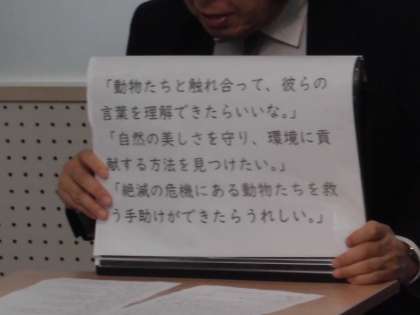 「動物たちと触れ合って、彼らの
言葉を理解できたらいいな。」
「自然の美しさを守り、環境に貢
献する方法を見つけたい。」
「絶滅の危機にある動物たちを救
う手助けができたらうれしい。」